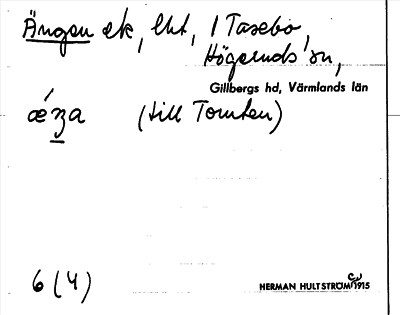 Ängen ek, lht, 1 Tasebo,
Högeruds sn,
Gillbergs hd, Värmlands län
(till Tomten)
6 (4)
HERMAN HULTSTRÖM 1915